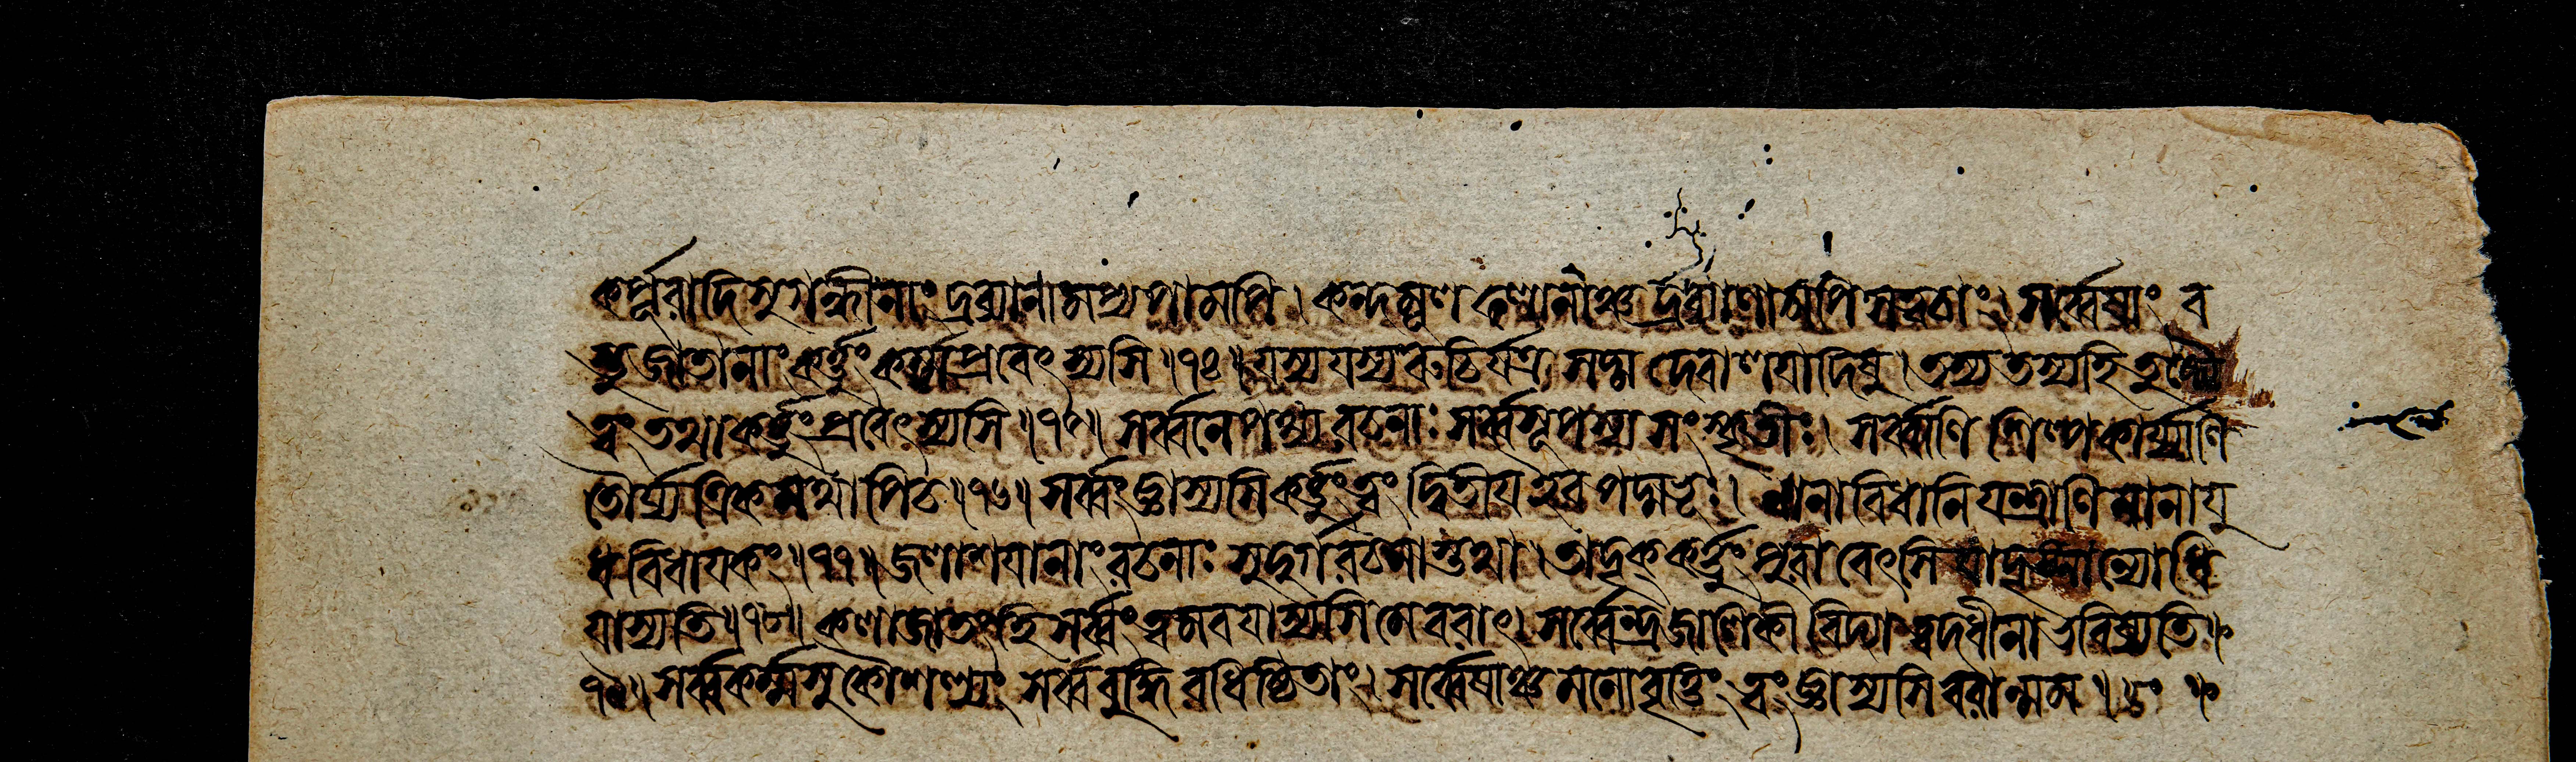 কর্প্পূরাদিসুগন্ধীনাং দ্রব্যানামপ্যপামপি । কন্দমূলফলানাঞ্চ দ্রব্যাণামপি সত্বচাং । সর্ব্বেষাং ব
স্তুজাতানাং কর্ত্তুং কর্ম্মপ্রবেৎস্যসি ॥১৪॥ যস্য যস্য রুচির্যত্র সদ্ম দেবালয়াদিষু । তস্য তস্যহি তুষ্ট্যৈ
ত্বং তথা কর্ত্তুং প্রবেৎস্যসি ॥১৫॥ সর্ব্বনেপথ্যরচনাঃ সর্ব্বসূপস্য সংস্কৃতীঃ । সর্ব্বাণি শিল্পকার্য্যাণি
তৌর্য্যত্রিকমথাপিচ ॥১৬॥ সর্ব্বং জ্ঞাস্যসি কর্ত্তুং ত্বং দ্বিতীয় ইব পদ্মভূঃ । নানাবিধানি যন্ত্রাণি নানায়ু
ধবিধায়কং ॥১৭॥ জলাশয়ানাং রচনাঃ সুদুর্গরচনাস্তথা । তাদৃক্ কর্ত্তুং পুরা বেৎসি যাদৃঙ্নান্যোধি
যাস্যতি ॥১৮॥ কলাজাতং হি সর্ব্বং ত্বমবযাস্যসি মে বরাৎ । সর্ব্বেন্দ্রজালিকী বিদ্যা ত্বদধীনা ভবিষ্যতি ॥
১৯॥ সর্ব্বকর্ম্মসুকৌশল্যং সর্ব্ববুদ্ধিবরিষ্ঠতাং । সর্ব্বেষাঞ্চ মনোবৃত্তিং ত্বং জ্ঞাস্যসি বরান্মম ॥